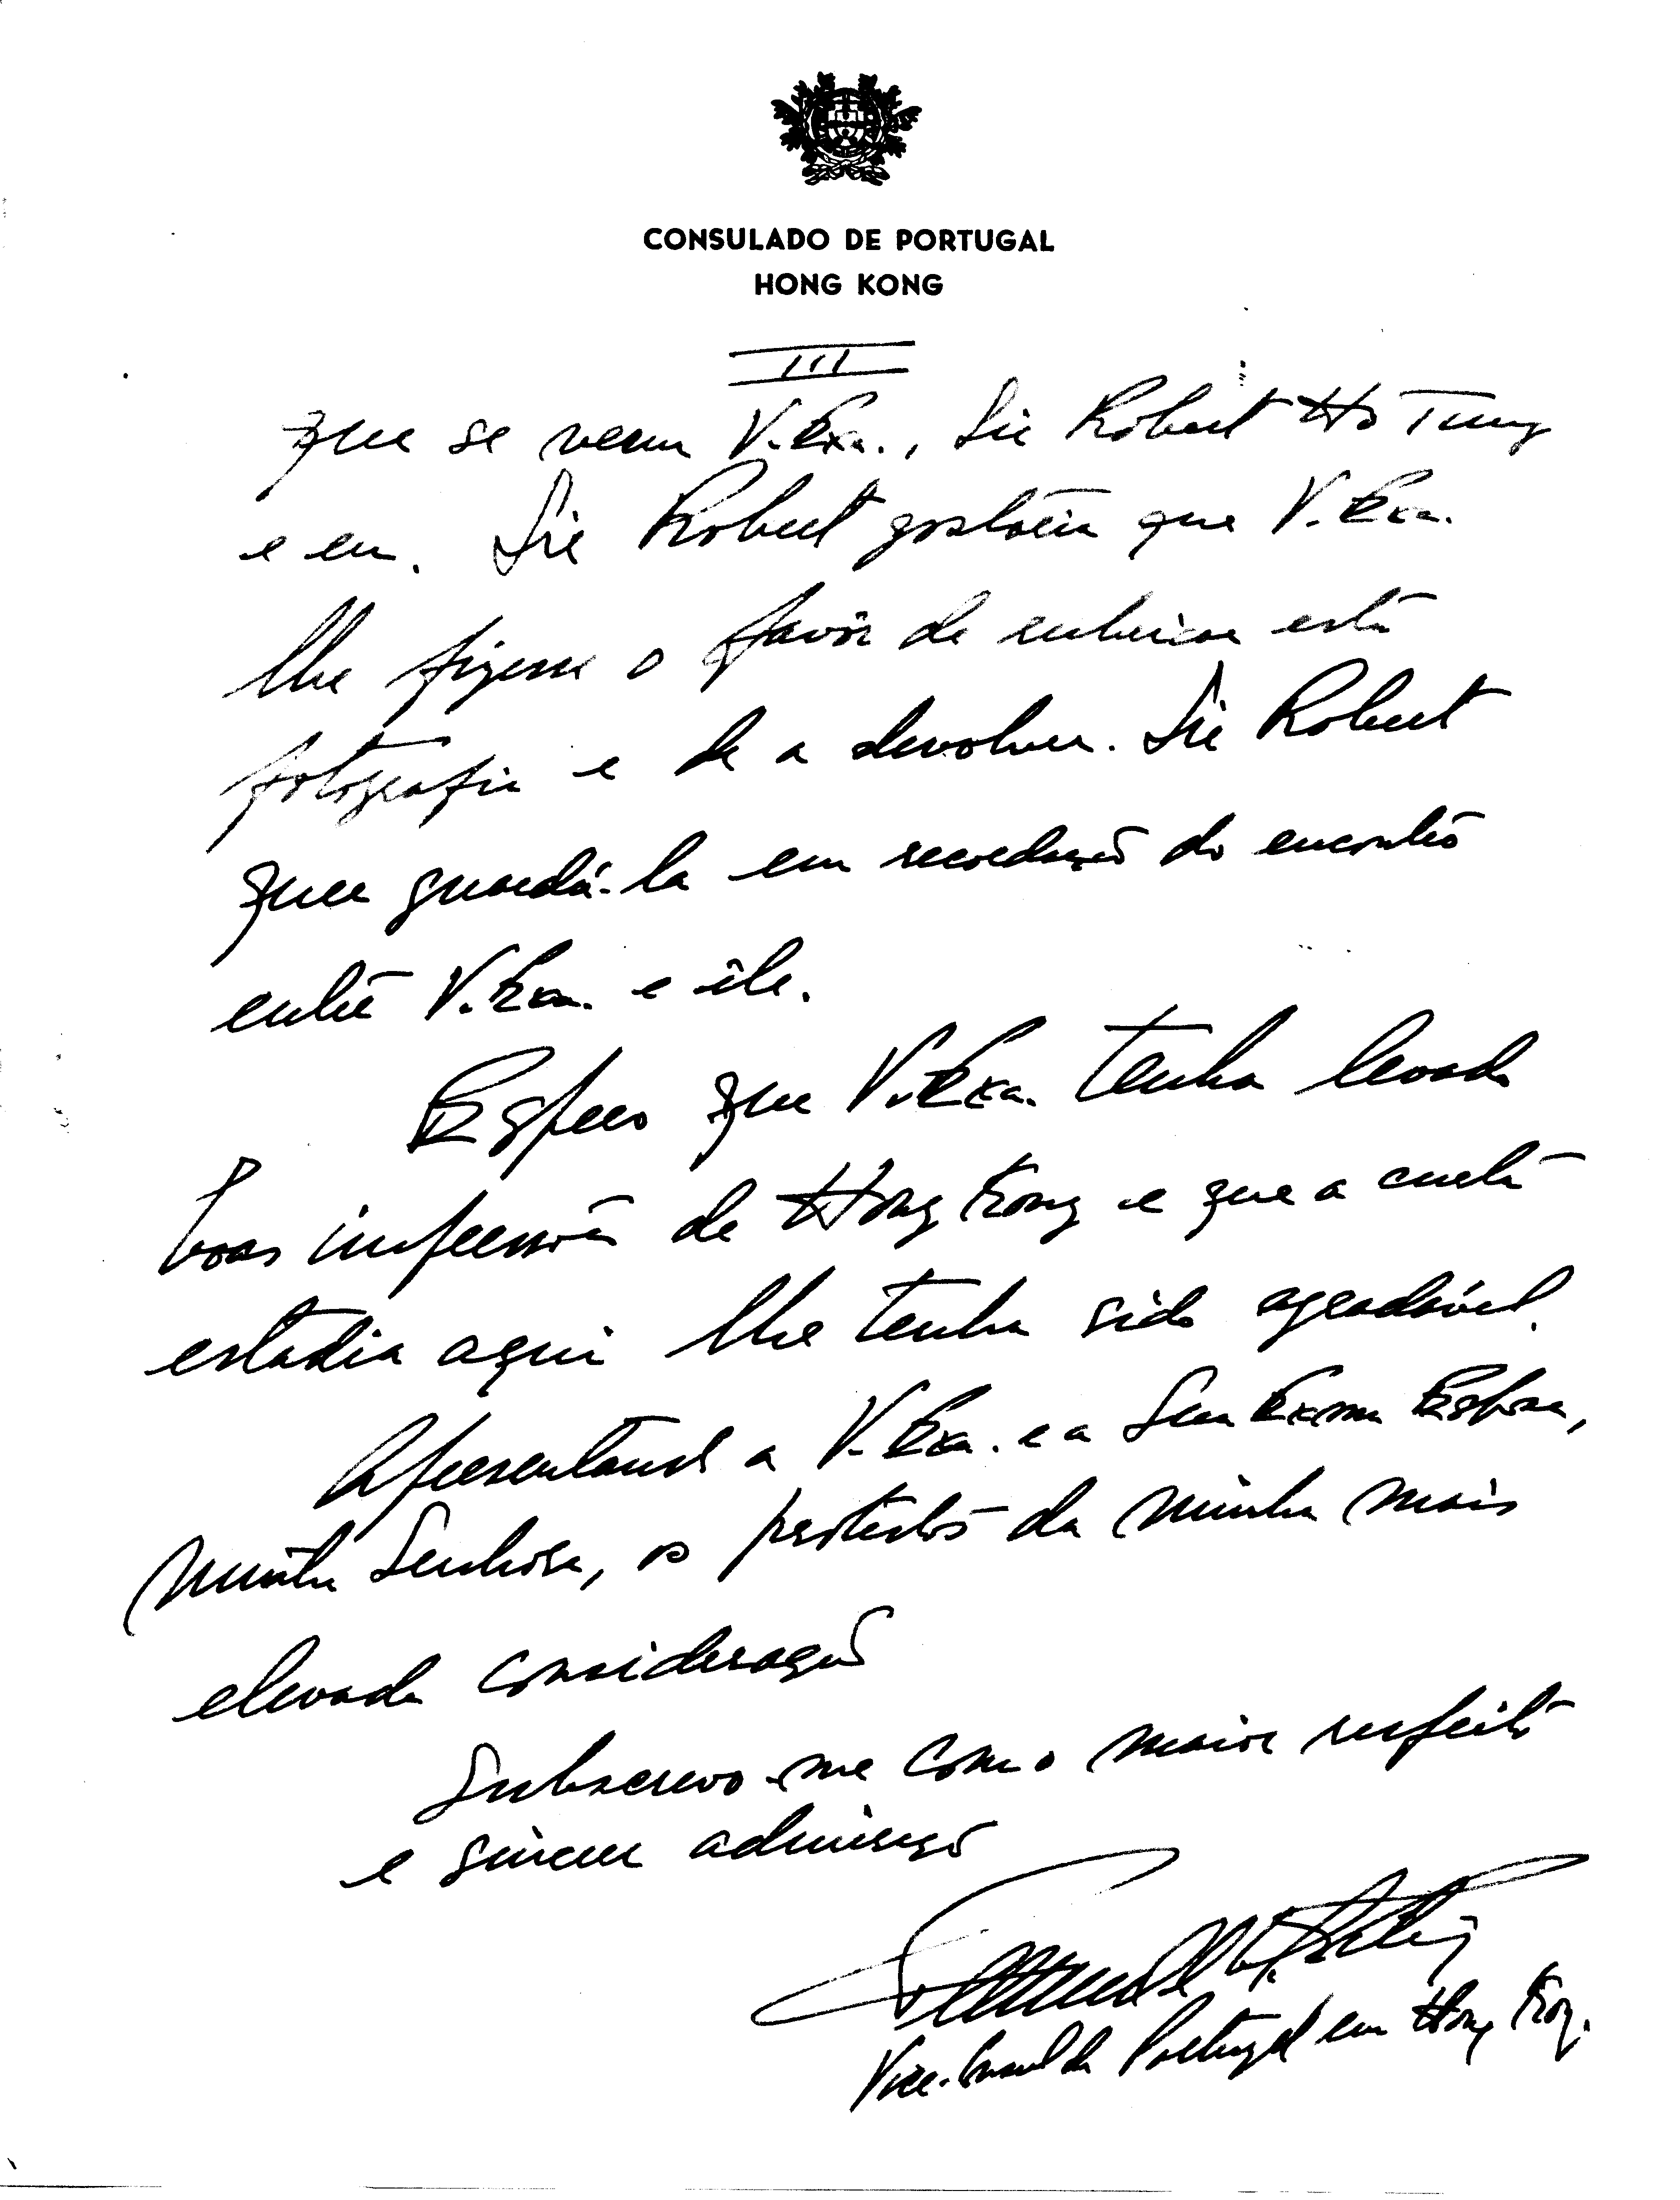 CONSULADO DE PORTUGAL
HONG KONG
III
que se veem V. Exa., Sir Robert Ho Tung
e eu. Sir Robert gostaria que V. Exa.
lhe fizesse o favôr de rubricar esta
fotografia e de a devolver. Sir Robert
quer guardá-la em recordação do encontro
entre V. Exa. e êle.
Espero que V. Exa. tenha levado
boas impressões de Hong Kong e que a curta
estadia aqui lhe tenha sido agradável.
Apresentando a V. Exa. e a Sua Exma Esposa,
minha Senhora, os protestos da minha mais
elevada consideração
Subscrevo-me com o maior respeito
e sincera admiração
Vice-Consul de Portugal em Hong Kong.